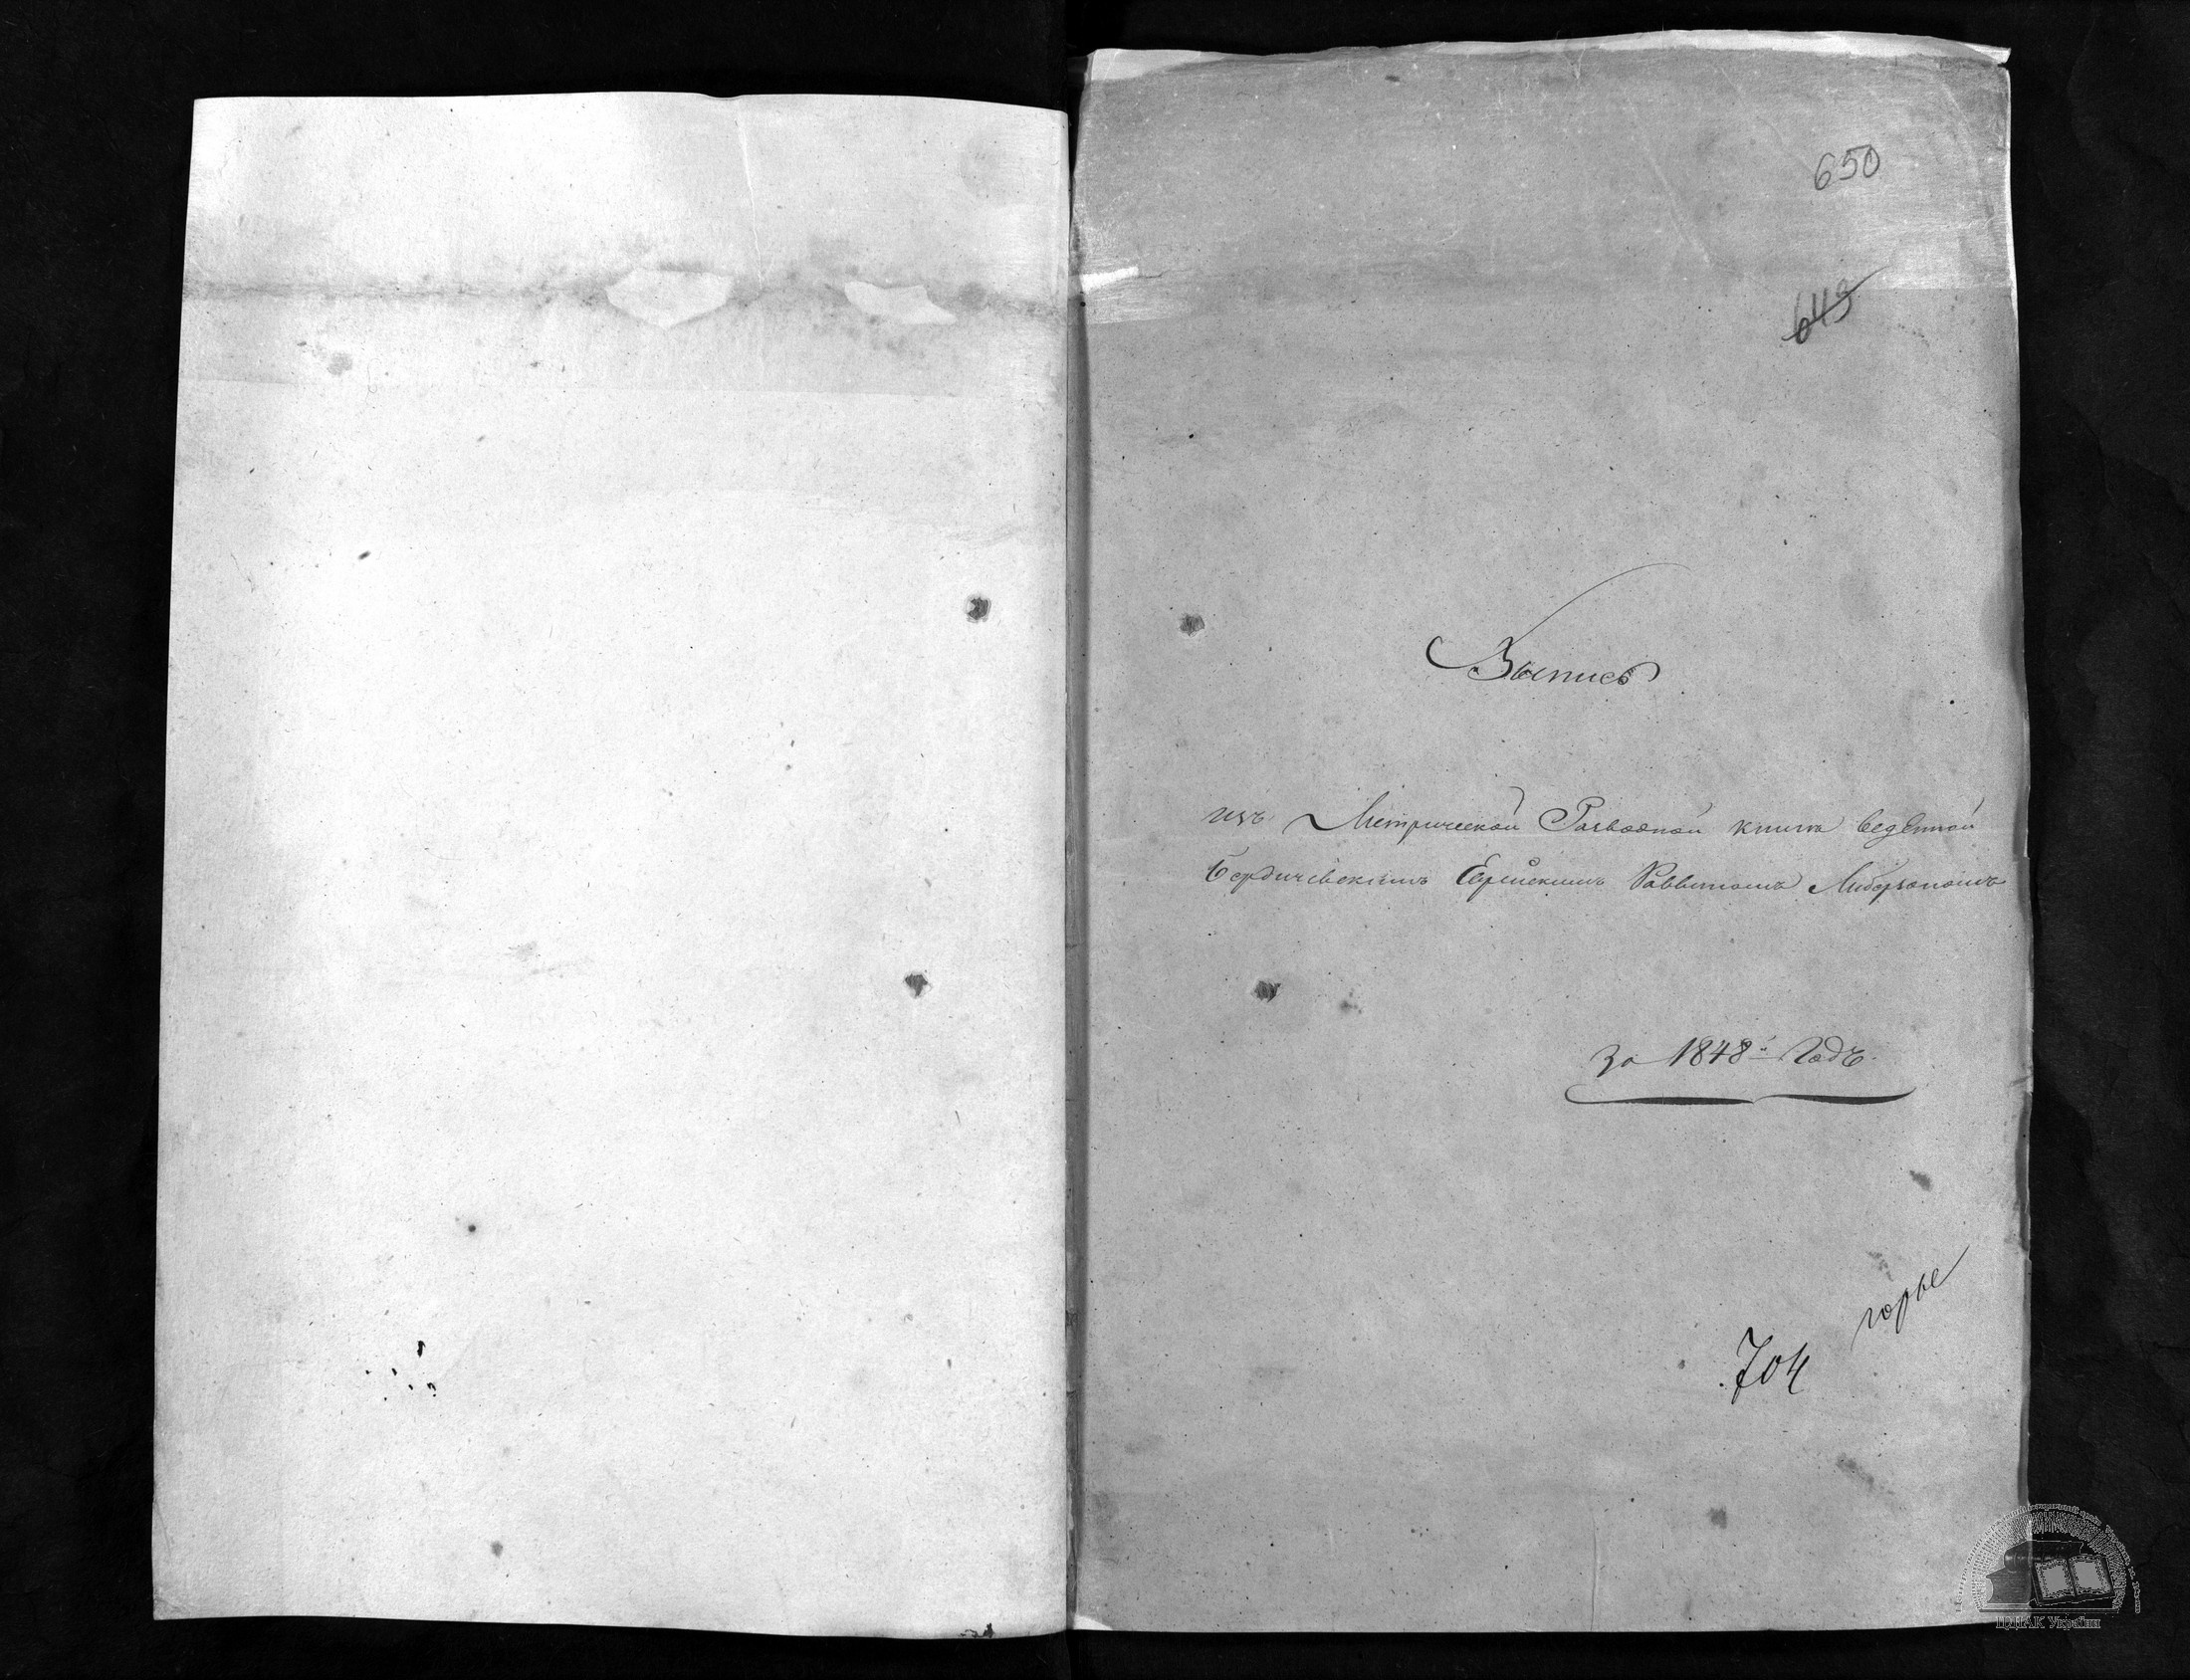 650
643
Выпись
изъ Метрической Разводной книги веденной
Бердичевскимъ Еврейскимъ Раввиномъ Либерзономъ
за 1848й Годъ.
704
ЦДІАК України